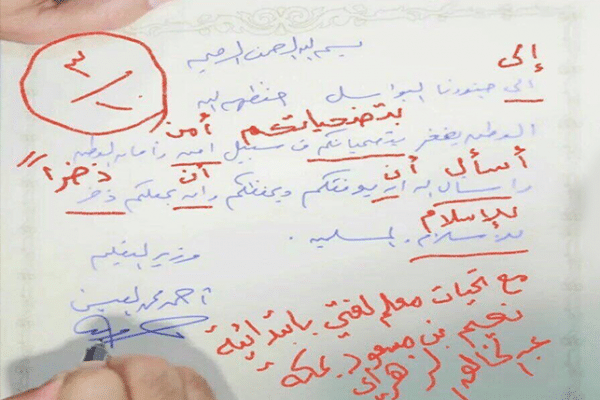 بسم الله الرحمن الرحيم
إلى
٣/١٠
الى جنودنا البواسل حفظهم الله
بتضحياتكم أمن
الوطن يفخر بتضحياتكم في سبيل امن وأمان الوطن
أسأل أن أن ذخراً
وأسال الله ان يوفقكم ويحفظكم وان يجعلكم ذخر
للإسلام
للإسلام والمسلمين.
وزير التعليم
أحمد محمد العيسى
مع تحيات معلم لغتي بابتدائية
نعيم بن مسعود بمكة
عبدالخالق الزهراني